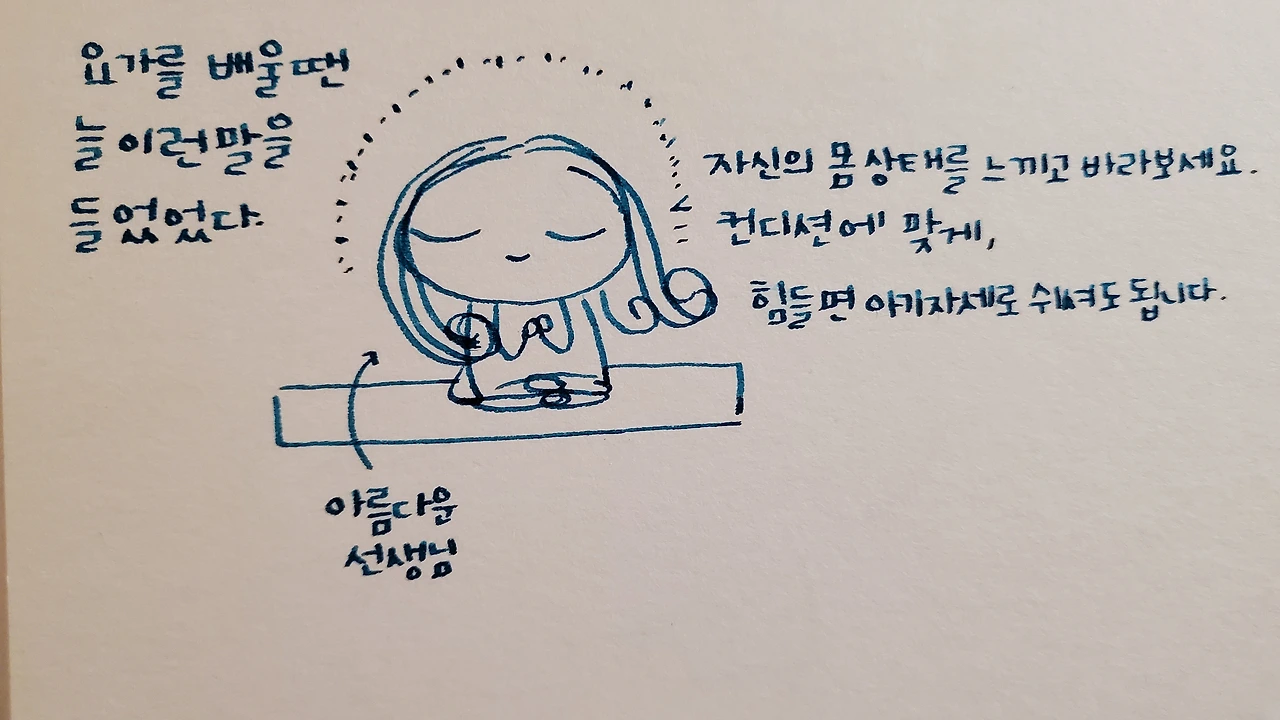 요가를 배울땐
늘 이런말을
들었었다.
자신의 몸 상태를 느끼고 바라보세요.
컨디션에 맞게,
힘들면 아기자세로 쉬셔도 됩니다.
아름다운
선생님